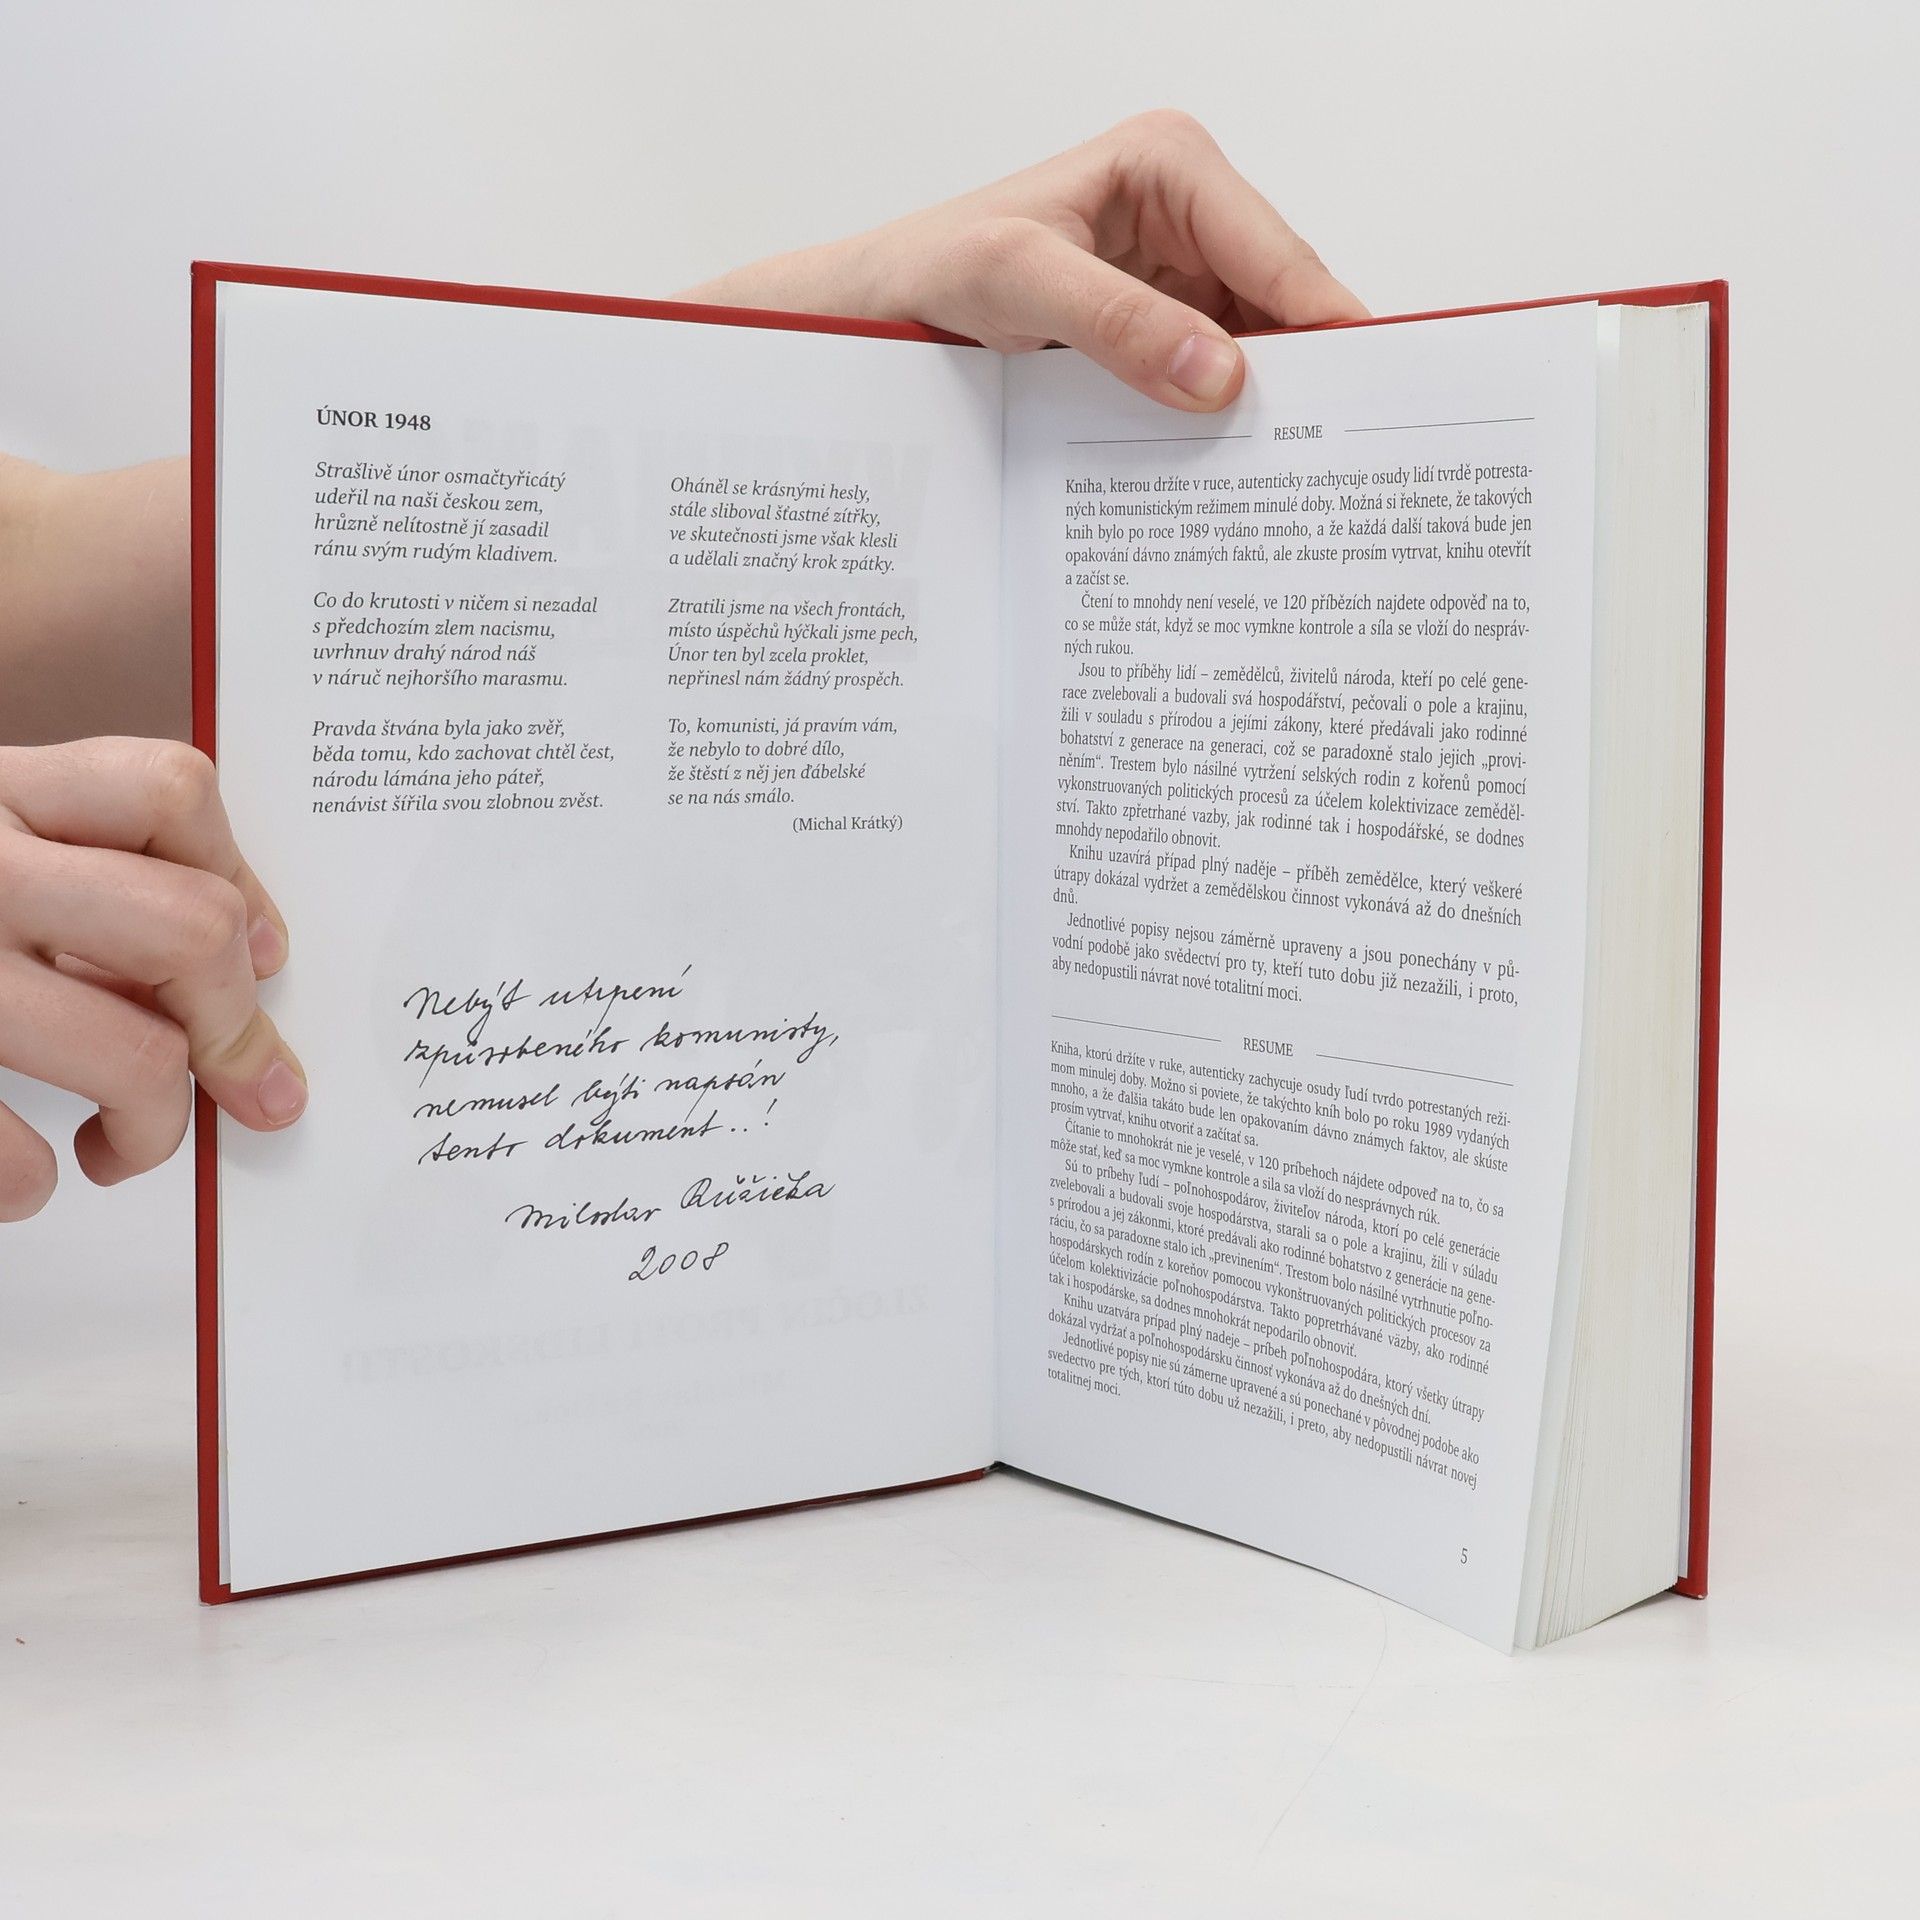 ÚNOR 1948
Strašlivě únor osmačtyřicátý
udeřil na naši českou zem,
hrůzně nelítostně jí zasadil
ránu svým rudým kladivem.
Co do krutosti v ničem si nezadal
s předchozím zlem nacismu,
uvrhnuv drahý národ náš
v náruč nejhoršího marasmu.
Pravda štvána byla jako zvěř,
běda tomu, kdo zachovat chtěl čest,
národu lámána jeho páteř,
nenávist šířila svou zlobnou zvěst.
Oháněl se krásnými hesly,
stále sliboval šťastné zítřky,
ve skutečnosti jsme však klesli
a udělali značný krok zpátky.
Ztratili jsme na všech frontách,
místo úspěchů hýčkali jsme pech,
Únor ten byl zcela proklet,
nepřinesl nám žádný prospěch.
To, komunisti, já pravím vám,
že nebylo to dobré dílo,
že štěstí z něj jen ďábelské
se na nás smálo.
(Michal Krátký)
Nebýt utrpení
způsobeného komunisty,
nemusel býti napsán
tento dokument..!
Miloslav Růžička
2008
RESUME
Kniha, kterou držíte v ruce, autenticky zachycuje osudy lidí tvrdě potresta-
ných komunistickým režimem minulé doby. Možná si řeknete, že takových
knih bylo po roce 1989 vydáno mnoho, a že každá další taková bude jen
opakování dávno známých faktů, ale zkuste prosím vytrvat, knihu otevřít
a začíst se.
Čtení to mnohdy není veselé, ve 120 příbězích najdete odpověď na to,
co se může stát, když se moc vymkne kontrole a síla se vloží do nespráv-
ných rukou.
Jsou to příběhy lidí – zemědělců, živitelů národa, kteří po celé gene-
race zvelebovali a budovali svá hospodářství, pečovali o pole a krajinu,
žili v souladu s přírodou a jejími zákony, které předávali jako rodinné
bohatství z generace na generaci, což se paradoxně stalo jejich „provi-
něním“. Trestem bylo násilné vytržení selských rodin z kořenů pomocí
vykonstruovaných politických procesů za účelem kolektivizace zeměděl-
ství. Takto zpřetrhané vazby, jak rodinné tak i hospodářské, se dodnes
mnohdy nepodařilo obnovit.
Knihu uzavírá případ plný naděje – příběh zemědělce, který veškeré
útrapy dokázal vydržet a zemědělskou činnost vykonává až do dnešních
dnů.
Jednotlivé popisy nejsou záměrně upraveny a jsou ponechány v pů-
vodní podobě jako svědectví pro ty, kteří tuto dobu již nezažili, i proto,
aby nedopustili návrat nové totalitní moci.
RESUME
Kniha, ktorú držíte v ruke, autenticky zachycuje osudy ľudí tvrdo potrestaných reži-
mom minulej doby. Možno si poviete, že takýchto kníh bolo po roku 1989 vydaných
mnoho, a že ďalšia takáto bude len opakovaním dávno známych faktov, ale skúste
prosím vytrvať, knihu otvoriť a začítať sa.
Čítanie to mnohokrát nie je veselé, v 120 príbehoch nájdete odpoveď na to, čo sa
môže stať, keď sa moc vymkne kontrole a sila sa vloží do nesprávnych rúk.
Sú to príbehy ľudí – poľnohospodárov, živiteľov národa, ktorí po celé generácie
zvelebovali a budovali svoje hospodárstva, starali sa o pole a krajinu, žili v súladu
s prírodou a jej zákonmi, ktoré predávali ako rodinné bohatstvo z generácie na gene-
ráciu, čo sa paradoxne stalo ich „previnením“. Trestom bolo násilné vytrhnutie poľno-
hospodárskych rodín z koreňov pomocou vykonštruovaných politických procesov za
účelom kolektivizácie poľnohospodárstva. Takto popretrhávané väzby, ako rodinné
tak i hospodárske, sa dodnes mnohokrát nepodarilo obnoviť.
Knihu uzatvára prípad plný nadeje – príbeh poľnohospodára, ktorý všetky útrapy
dokázal vydržať a poľnohospodársku činnosť vykonáva až do dnešných dní.
Jednotlivé popisy nie sú zámerne upravené a sú ponechané v pôvodnej podobe ako
svedectvo pre tých, ktorí túto dobu už nezažili, i preto, aby nedopustili návrat novej
totalitnej moci.
5